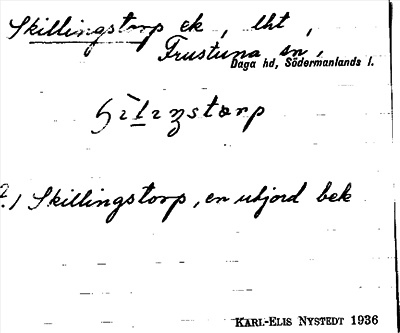 Skillingstorp ek, lht,
Frustuna sn,
Daga hd, Södermanlands l.
Skillingstorp, en utjord bek
KARL-ELIS NYSTEDT 1936